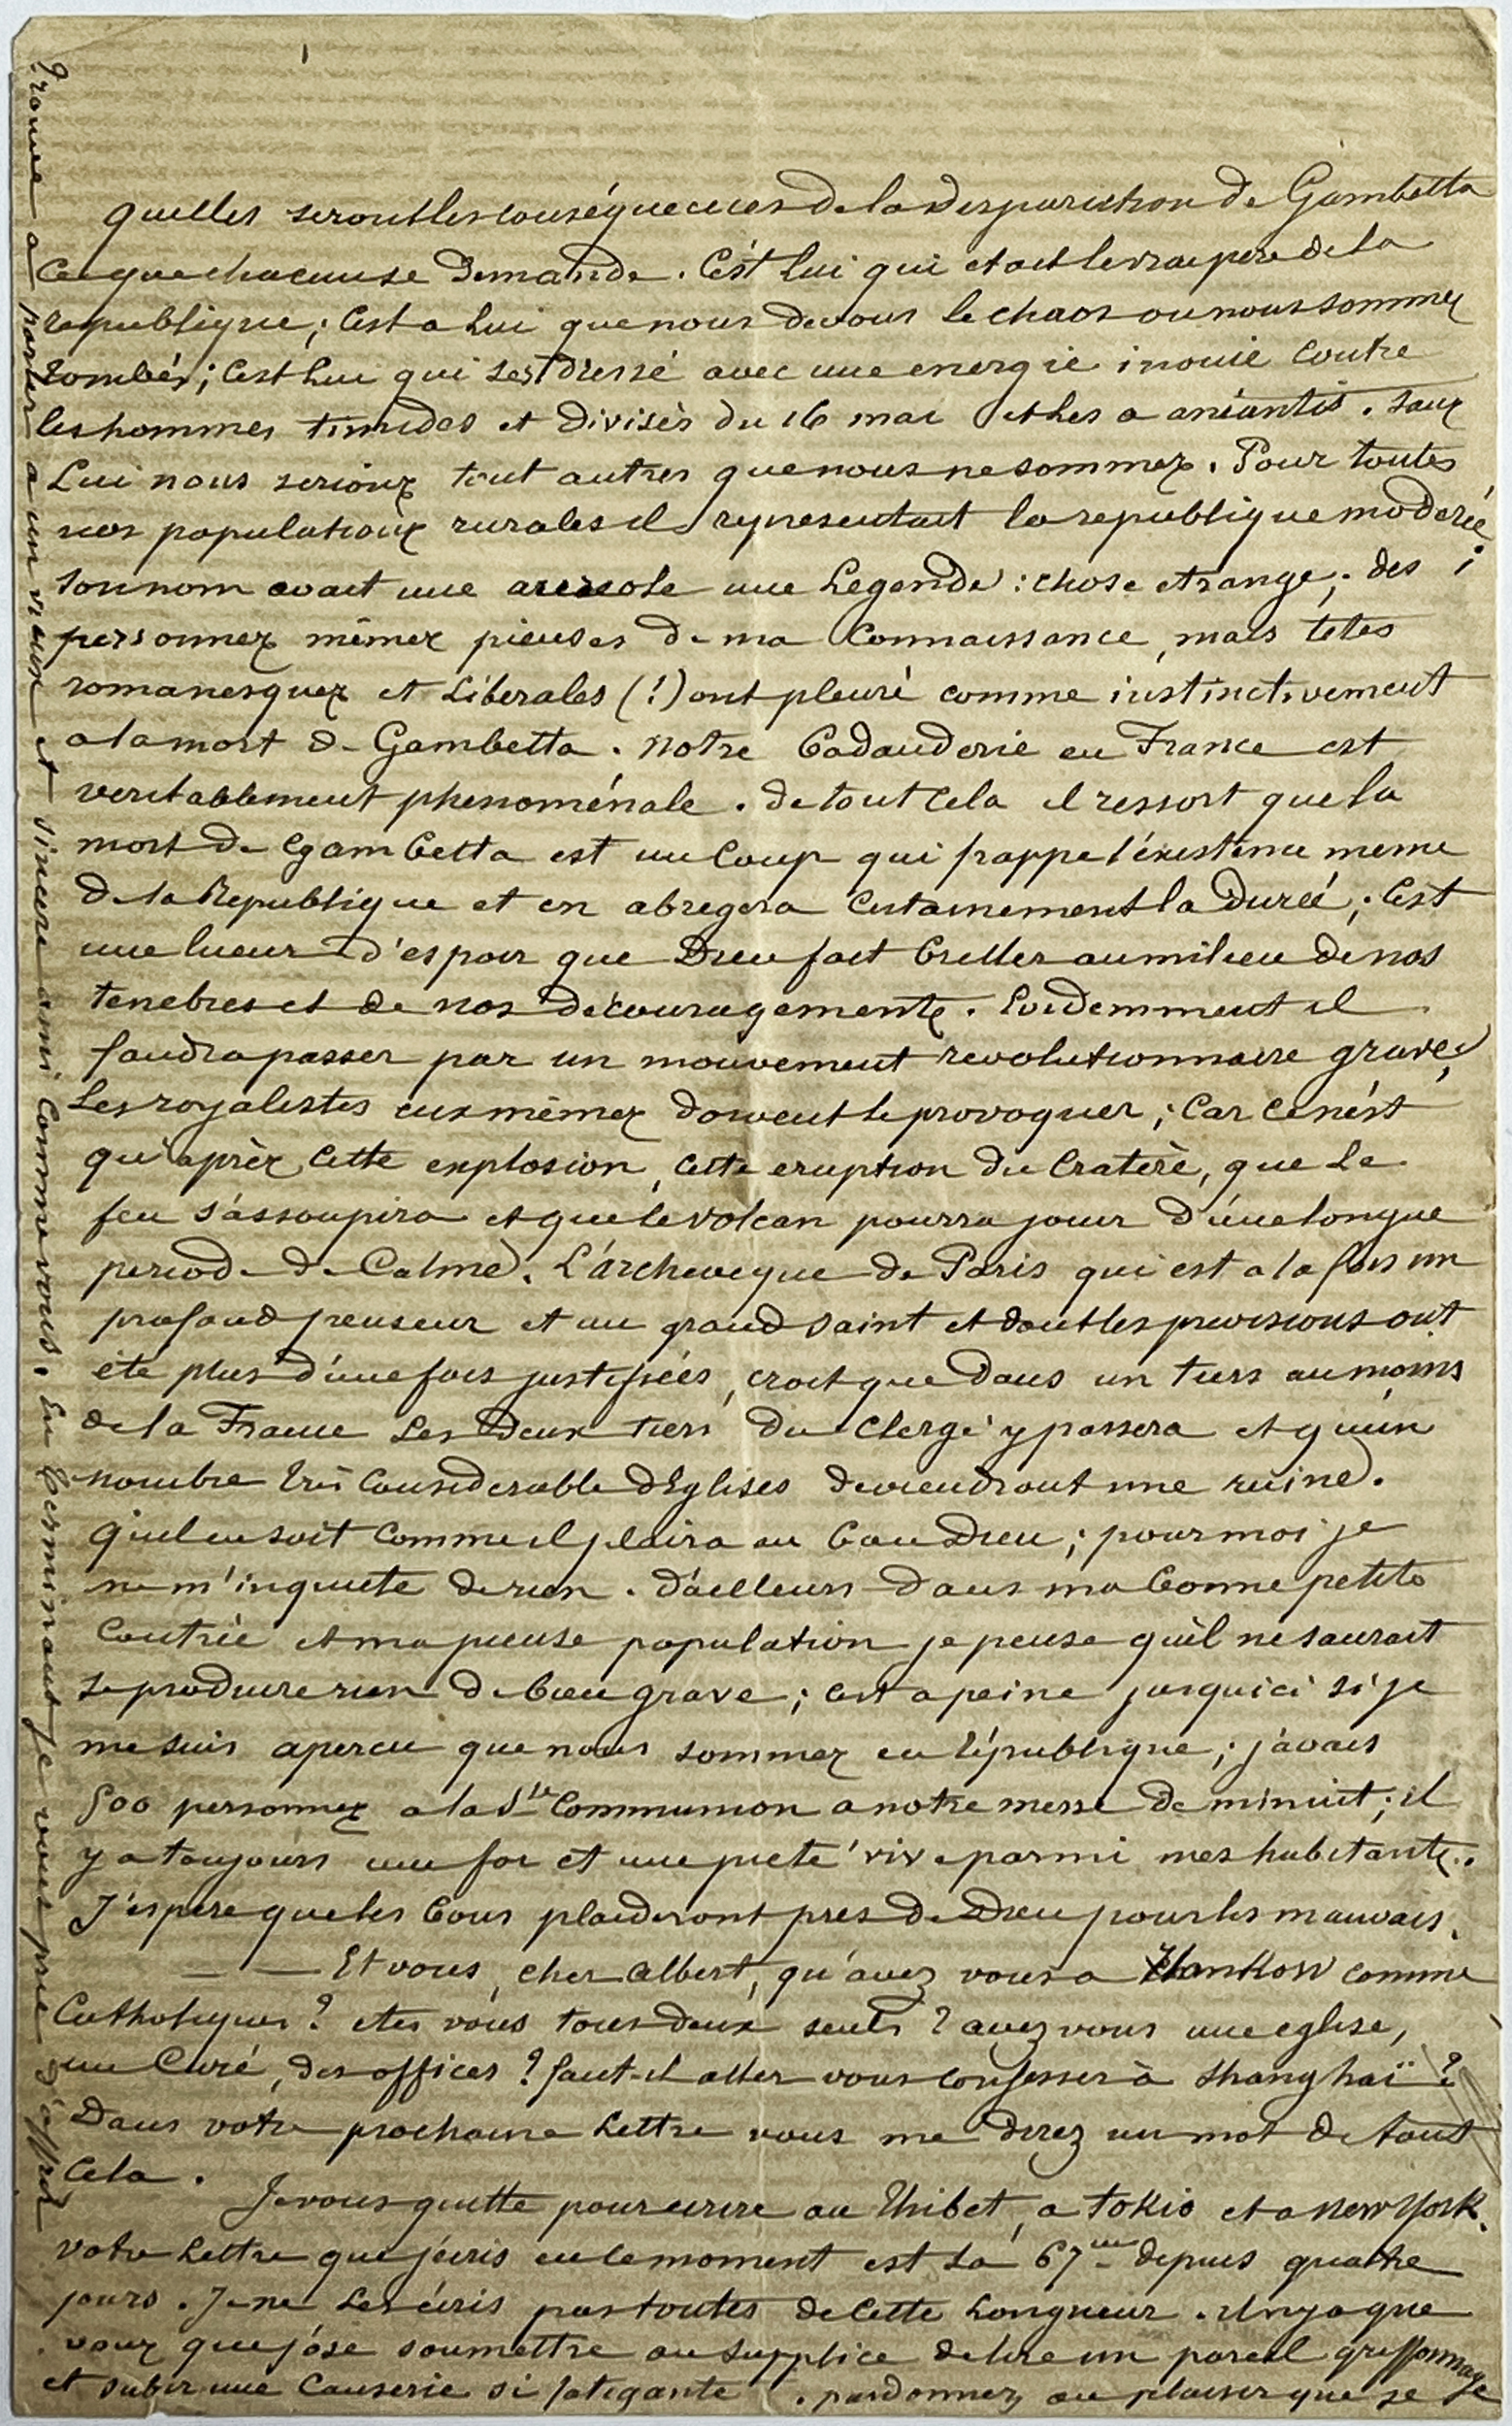 quelles seront les conséquences de la disparition de Gambetta
Ce que chacun se demande. C'est lui qui etait le vrai pere de la
republique; C'est a lui que nous devons le chaos ou nous sommes
tombés; C'est lui qui s'est dressé avec une energie inouie Contre
les hommes timides et divisés du 16 mai et les a anéantis. Sans
Lui nous serions tout autres que nous ne sommes. Pour toutes
nos populations rurales il representait la republique moderée;
Son nom avait une aureole une Legende: chose etrange, des
personnes mêmes pieuses de ma Connaissance, mais têtes
romanesques et Libérales (!) ont pleuré comme instinctivement
a la mort de Gambetta. Notre badauderie en France est
veritablement phenoménale. de tout Cela il ressort que la
mort de Gambetta est un Coup qui frappe l'éxistence meme
de la Republique et en abregera Certainement la Durée; C'est
une lueur d'espoir que Dieu fait briller au milieu de nos
tenebres et de nos découragements. Evidemment il
faudra passer par un mouvement revolutionnaire grave;
Les royalistes eux mêmes doivent le provoquer; Car Ce n'ést
qu'après Cette explosion, Cette eruption du Cratère, que Le
feu s'assoupira et que le volcan pourra jouir d'une longue
periode de Calme. L'archeveque de Paris qui est a la fois un
profond penseur et un grand saint et dont les previsions ont
éte plus d'une fois justifiées, croit que dans un tiers au moins
de la France Les deux tiers du Clergé y passera et qu'un
nombre très Considerable d'Eglises deviendront une ruine.
Qu'il en soit Comme il plaira au bon Dieu; pour moi je
ne m'inquiete de rien. D'ailleurs dans ma bonne petite
Contrée et ma pieuse population je pense qu'il ne saurait
se produire rien de bien grave; C'est a peine jusqu'ici si je
me suis apercu que nous sommes en république; j'avais
500 personnes a la Ste Communion a notre messe de minuit; il
y a toujours une foi et une pieté vive parmi mes habitants.
J'espere que les bons plaideront pres de Dieu pour les mauvais.
— — Et vous, cher Albert, qu'avez vous a Hankow comme
Catholiques? etes vous tous deux seuls? avez vous une eglise,
un Curé, des offices? faut-il aller vous confesser à Shanghaï?
Dans votre prochaine Lettre vous me direz un mot de tout
Cela.
Je vous quitte pour ecrire au Thibet, a Tokio et a New York.
Votre Lettre que j'écris en ce moment est La 67me depuis quatre
jours. Je ne Les écris pas toutes de Cette Longueur. Il n'y a que
vous que j'ose soumettre au supplice de lire un pareil griffonnage
et subir une Causerie si fatigante. pardonnez au plaisir que je
trouve a parler a un vieux et sincere ami Comme vous. En terminant je vous prie